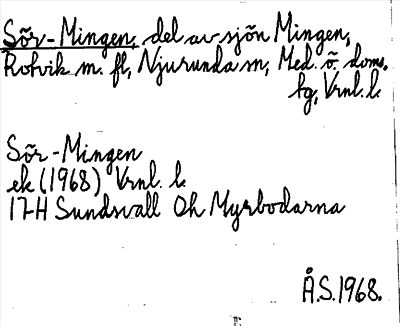 Sör-Mingen, del av sjön Mingen,
Rotvik m. fl, Njurunda sn, Med. ö. doms.
tg, Vrnl. l.
Sör-Mingen
ek (1968) Vrnl. l.
17H Sundsvall Öh Myrbodarna
Å.S. 1968.